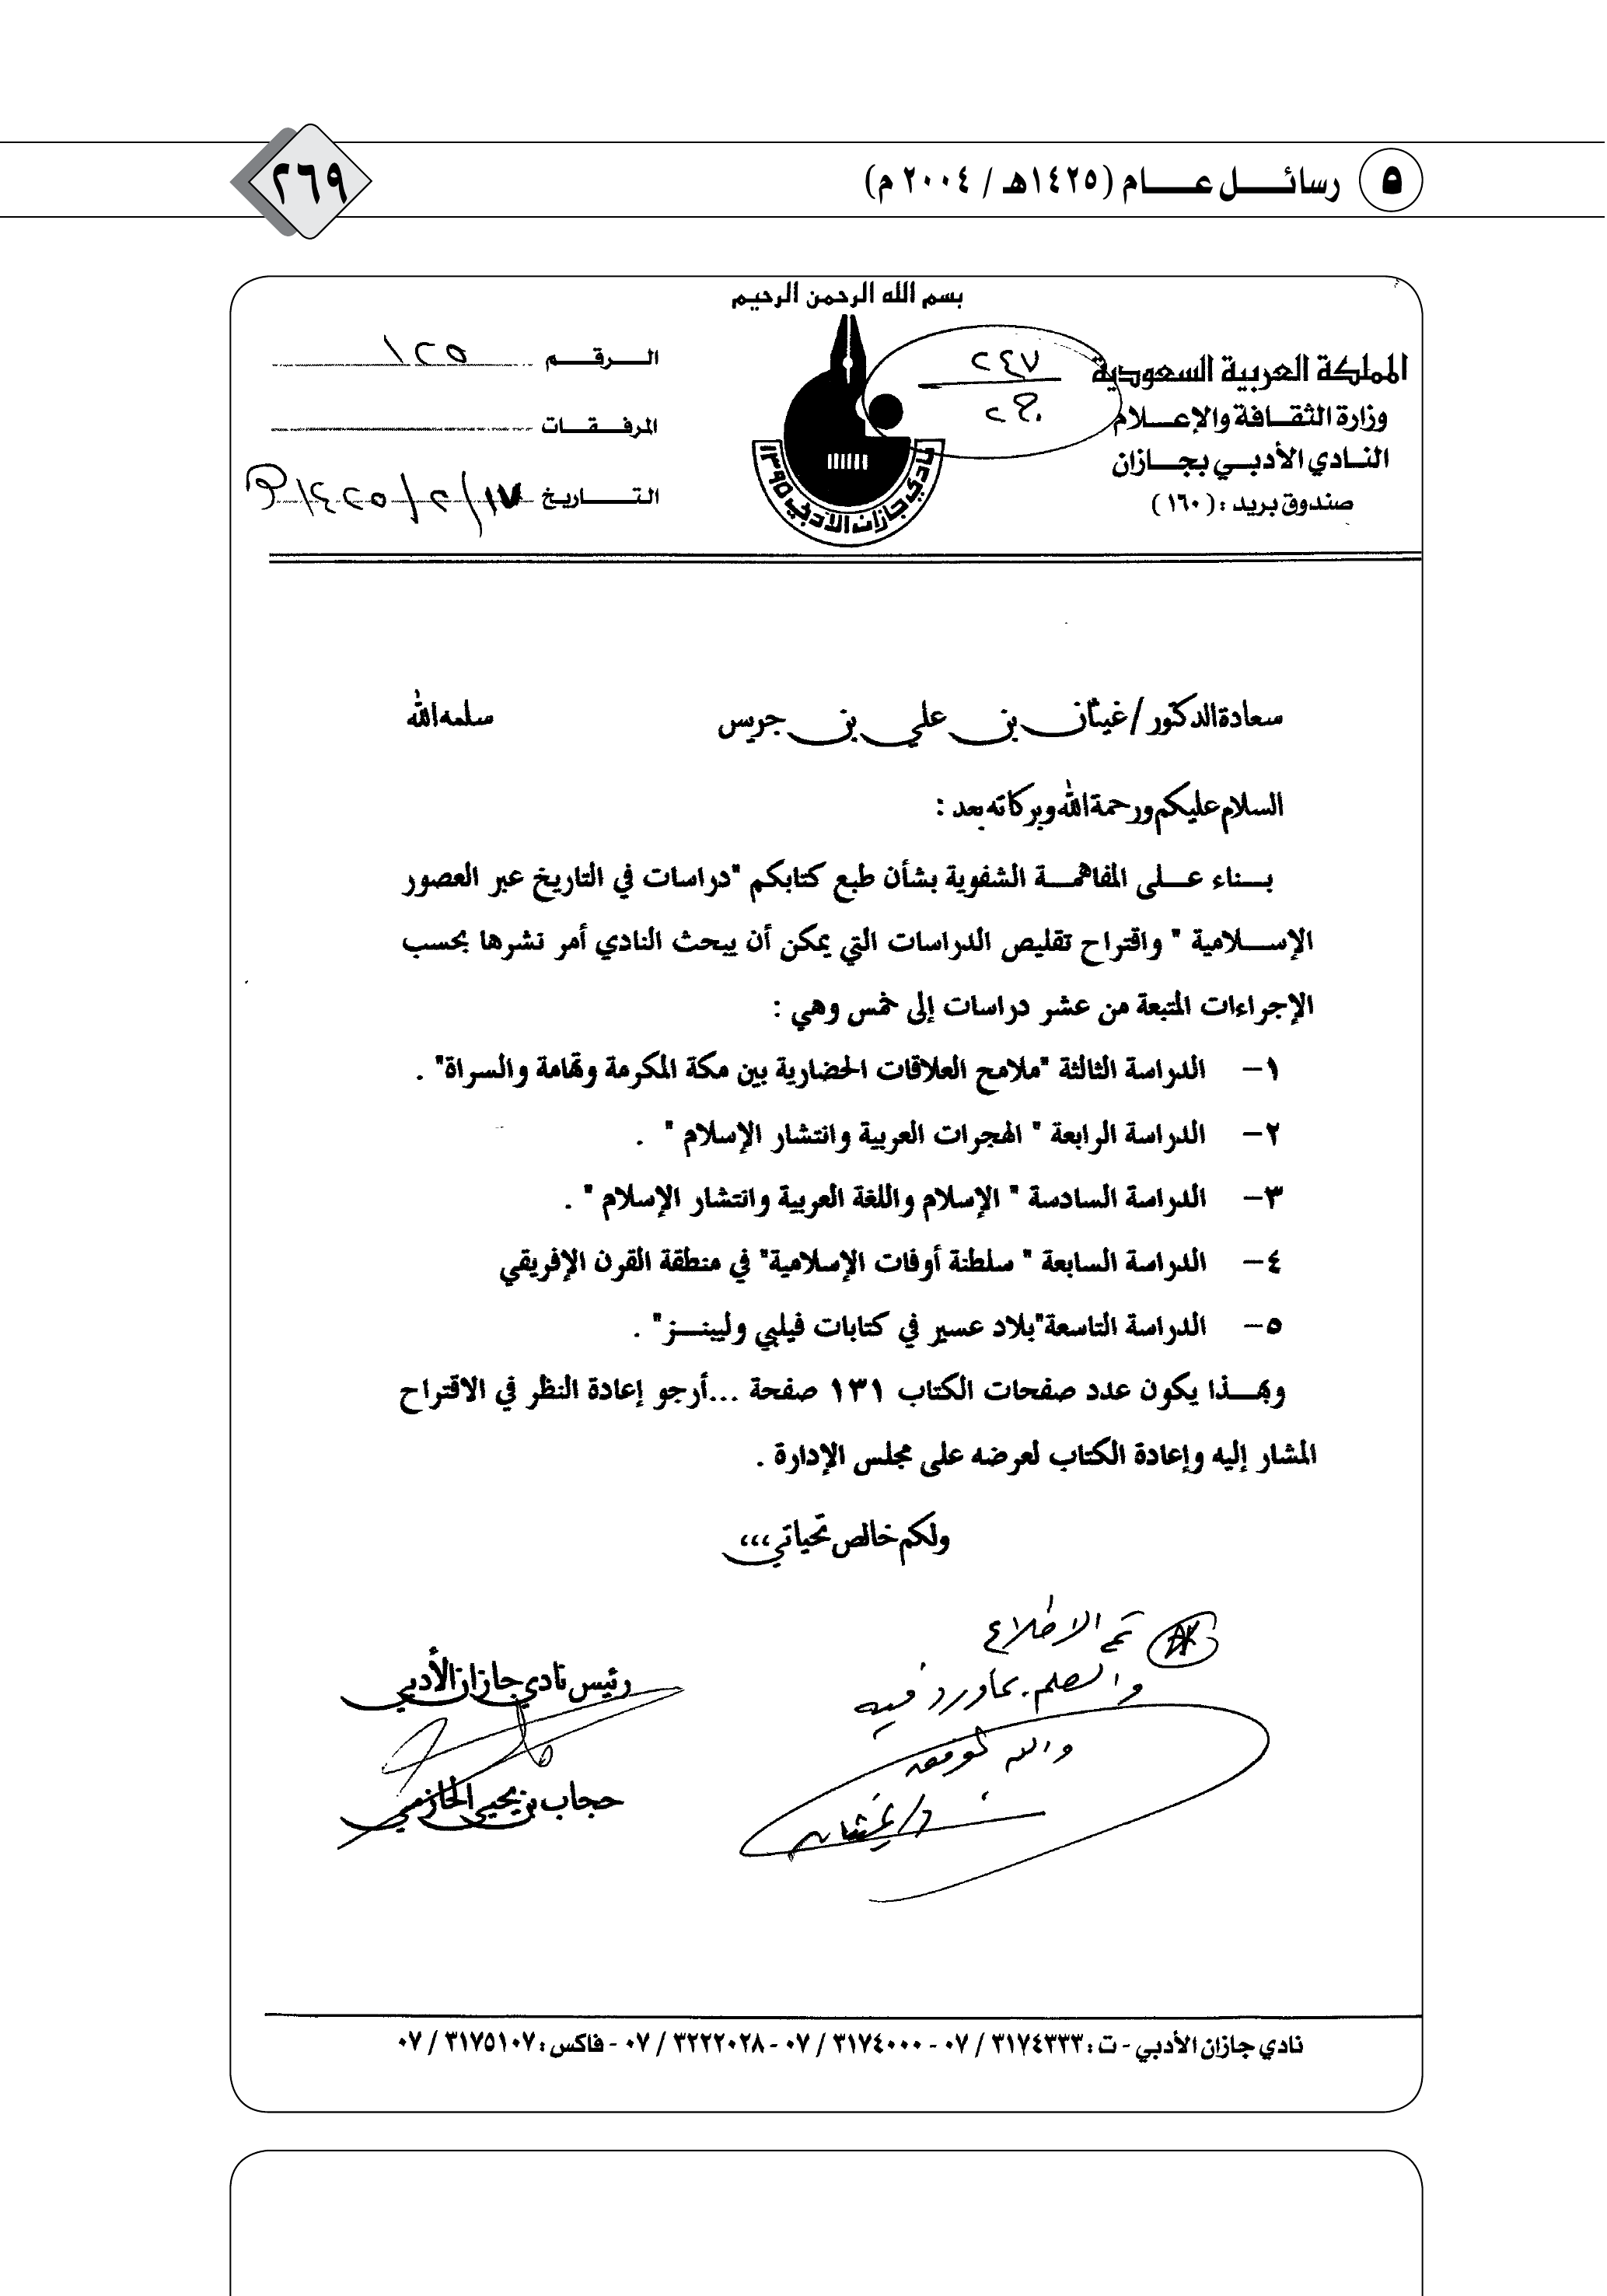 ٥ رسائـــل عـــام (١٤٢٥هـ / ٢٠٠٤ م)
٢٦٩
بسم الله الرحمن الرحيم
المملكة العربية السعودية
وزارة الثقـافة والإعـــلام
النــادي الأدبــي بـجــازان
صندوق بريد : ( ١٦٠ )
٢٤٧
نادي جازان الأدبي ١٣٩٥
الـــرقـــم ١٢٥
المرفــقــات
التــــاريخ ١٧/٢/١٤٢٥
سعادة الدكتور / غيثان بن علي بن جريس سلمه الله
السلام عليكم ورحمة الله وبركاته بعد :
بـــناء عـــلى المفاهمـــة الشفوية بشأن طبع كتابكم "دراسات في التاريخ عبر العصور
الإســـلامية " واقتراح تقليص الدراسات التي يمكن أن يبحث النادي أمر نشرها بحسب
الإجراءات المتبعة من عشر دراسات إلى خمس وهي :
١- الدراسة الثالثة "ملامح العلاقات الحضارية بين مكة المكرمة وتهامة والسراة" .
٢- الدراسة الرابعة " الهجرات العربية وانتشار الإسلام " .
٣- الدراسة السادسة " الإسلام واللغة العربية وانتشار الإسلام " .
٤- الدراسة السابعة " سلطنة أوفات الإسلامية" في منطقة القرن الإفريقي
٥- الدراسة التاسعة"بلاد عسير في كتابات فيلبي وليبنـــز" .
وبهـــذا يكون عدد صفحات الكتاب ١٣١ صفحة ...أرجو إعادة النظر في الاقتراح
المشار إليه وإعادة الكتاب لعرضه على مجلس الإدارة .
ولكم خالص تحياتي،،،
تم الاطلاع
والعلم بما ورد فيه
والله الموفق
د/ غيثان
رئيس نادي جازان الأدبي
حجاب بن يحيى الحازمي
نادي جازان الأدبي - ت : ٣١٧٤٣٣٣ / ٠٧ - ٣١٧٤٠٠٠ / ٠٧ - ٣٢٢٢٠٢٨ / ٠٧ - فاكس : ٣١٧٥١٠٧ / ٠٧